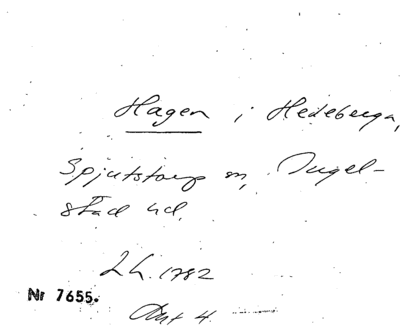 Hagen i Hedeberga,
Spjutstorp sn, Ingel-
stad hd.
Lh. 1782
Nr 7655.
Akt 4